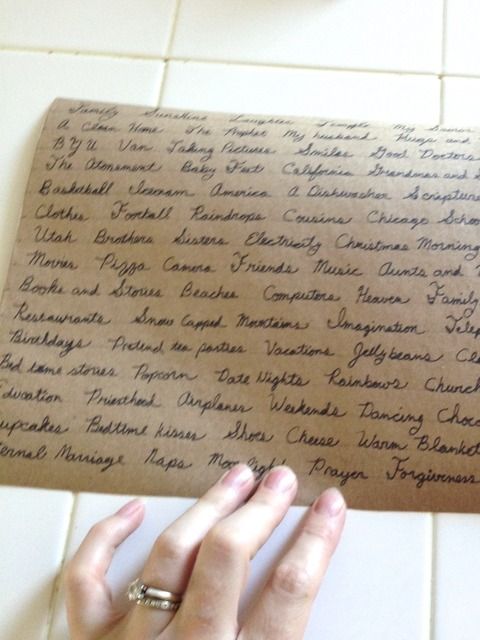 Family Sunshine Laughter Temple My Savior
A Clean Home The Prophet My husband Hugs and
BYU Van Taking Pictures Smiles Good Doctors
The Atonement Baby Feet California Grandmas and
Basketball Icecream America A Dishwasher Scripture
Clothes Football Raindrops Cousins Chicago Schoo
Utah Brothers Sisters Electricity Christmas Morning
Movies Pizza Camera Friends Music Aunts and
Books and Stories Beaches Computers Heaven Family
Restaurants Snow Capped Mountains Imagination Telep
Birthdays Pretend tea parties Vacations Jellybeans Cl
Bed time stories Popcorn Date Nights Rainbows Church
Education Priesthood Airplanes Weekends Dancing Choc
upcakes Bedtime kisses Shoes Cheese Warm Blanket
ternal Marriage Naps Moonlight Prayer Forgiveness